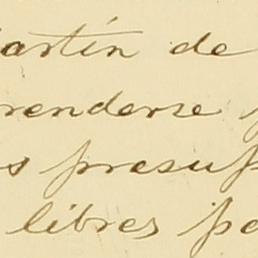 artín de
renderse
s presup
libres pa